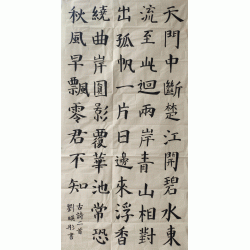 天門中斷楚江開碧水東
流至此迴兩岸青山相對
出孤帆一片日邊來浮香
繞曲岸圓影覆華池常恐
秋風早飄零君不知
古詩二首
劉彤書